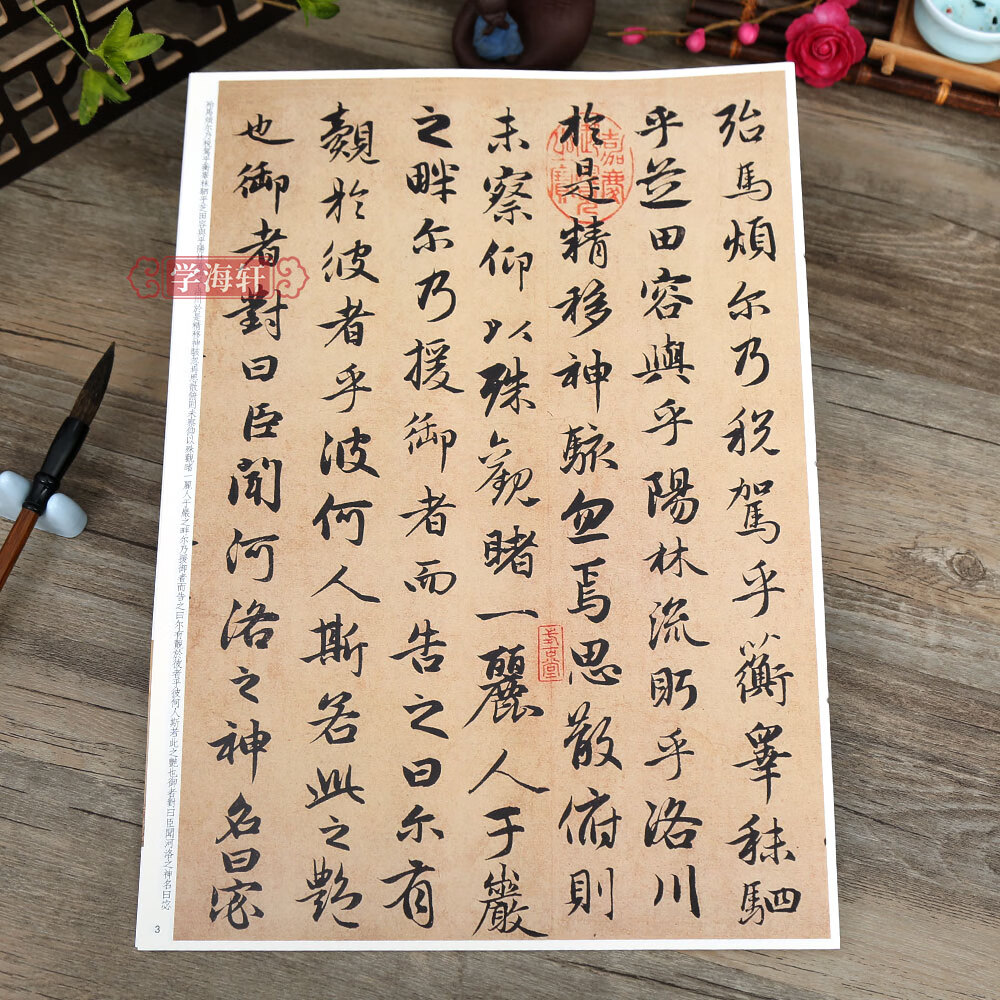 殆馬煩尔乃稅駕乎蘅皋秣駟
乎芝田容與乎陽林流眄乎洛川
於是精移神駭忽焉思散俯則
未察仰以殊觀睹一麗人于巖
之畔尔乃援御者而告之曰尔有
覿於彼者乎彼何人斯若此之艷
也御者對曰臣聞河洛之神名曰宓
殆馬煩尔乃稅駕乎蘅皋秣駟乎芝田容與乎陽林 川於是精移神駭忽焉思散俯則未察仰以殊觀睹一麗人于巖之畔尔乃援御者而告之曰尔有覿於彼者乎彼何人斯若此之艷也御者對曰臣聞河洛之神名曰宓
3
学海轩
嘉慶